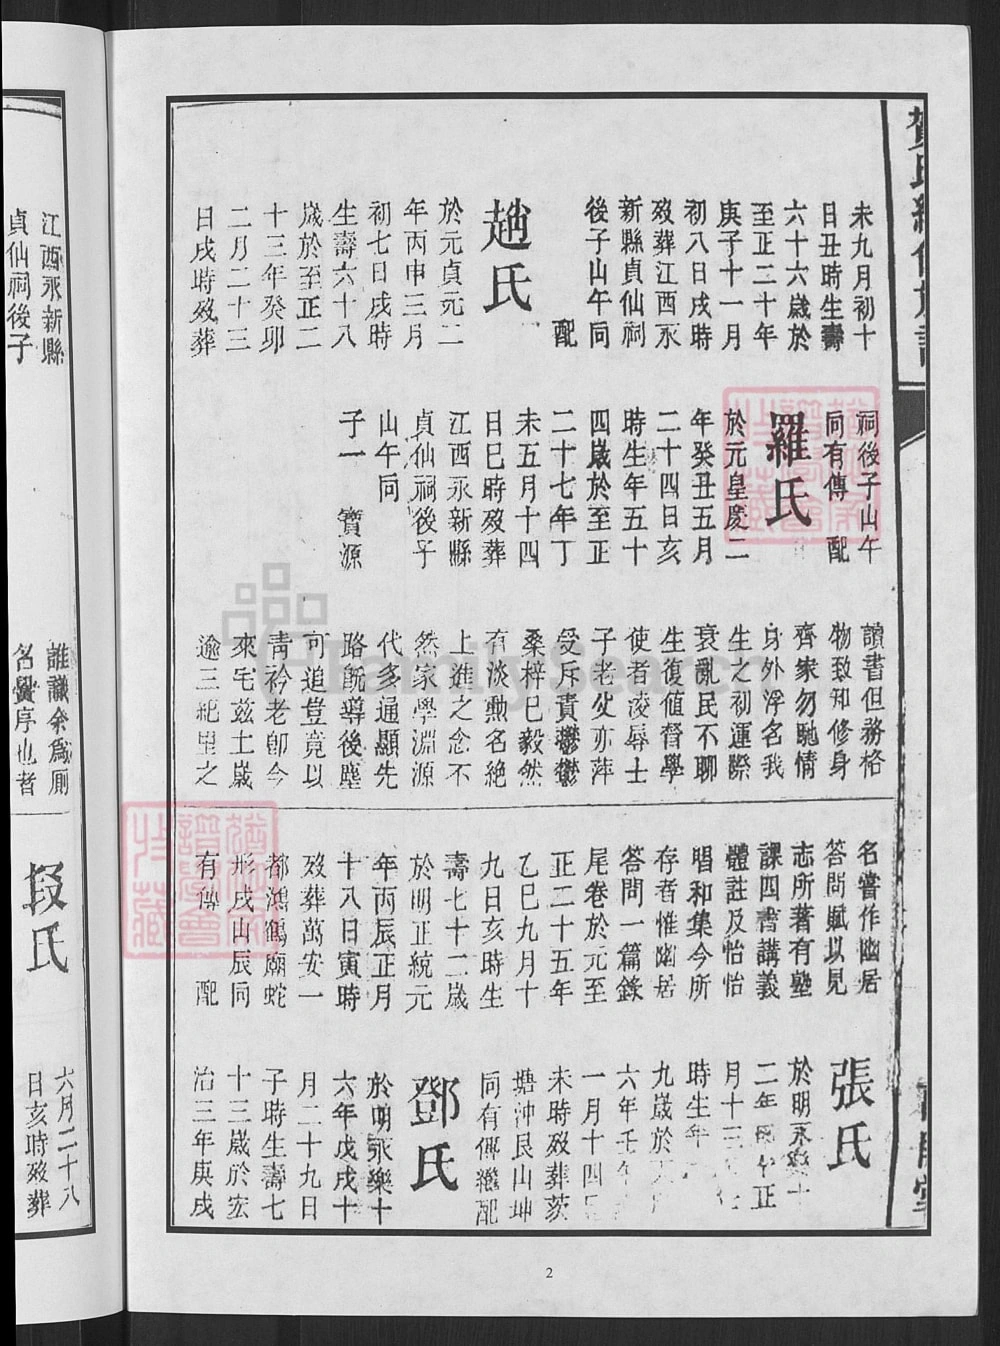 未九月初十
日丑時生壽
六十六歲於
至正二十年
庚子十一月
初八日戌時
歿葬江西永
新縣貞仙祠
後子山午同
配
趙氏
於元貞元二
年丙申三月
初七日戌時
生壽六十八
歲於至正二
十三年癸卯
二月二十三
日戌時歿葬
祠後子山午
同有傳 配
羅氏
於元皇慶二
年癸丑五月
二十四日亥
時生年五十
四歲於至正
二十七年丁
未五月十四
日巳時歿葬
江西永新縣
貞仙祠後子
山午同
子一 寶源
讀書但務格
物致知修身
齊家勿馳情
身外浮名我
生之初運際
衰亂民不聊
生復值督學
使者凌辱士
子老父亦萍
受斥責鬱鬱
桑梓巳毅然
有淡勲名絕
上進之念不
然家學淵源
代多通顯先
路旣導後塵
可追豈竟以
靑衿老卽今
來宅茲土歲
逾三紀里之
名嘗作幽居
答問賦以見
志所著有塾
課四書講義
體註及怡怡
唱和集今所
存者惟幽居
答問一篇錄
尾卷於元至
正二十五年
乙巳九月十
九日亥時生
壽七十二歲
於明正統元
年丙辰正月
十八日寅時
歿葬萬安一
都鴻鶴廟蛇
形戌山辰同
有傳 配
張氏
於明永樂十
二年 午正
月十三
時生年
九歲於
六年壬午
一月十四日
未時歿葬茨
塘沖艮山坤
同有傳繼配
鄧氏
於明永樂十
六年戊戌十
月二十九日
子時生壽七
十三歲於宏
治三年庚戌
2
江西永新縣
貞仙祠後子
誰識余爲厠
名黌序也者
段氏
六月二十八
日亥時歿葬
FamilySearch